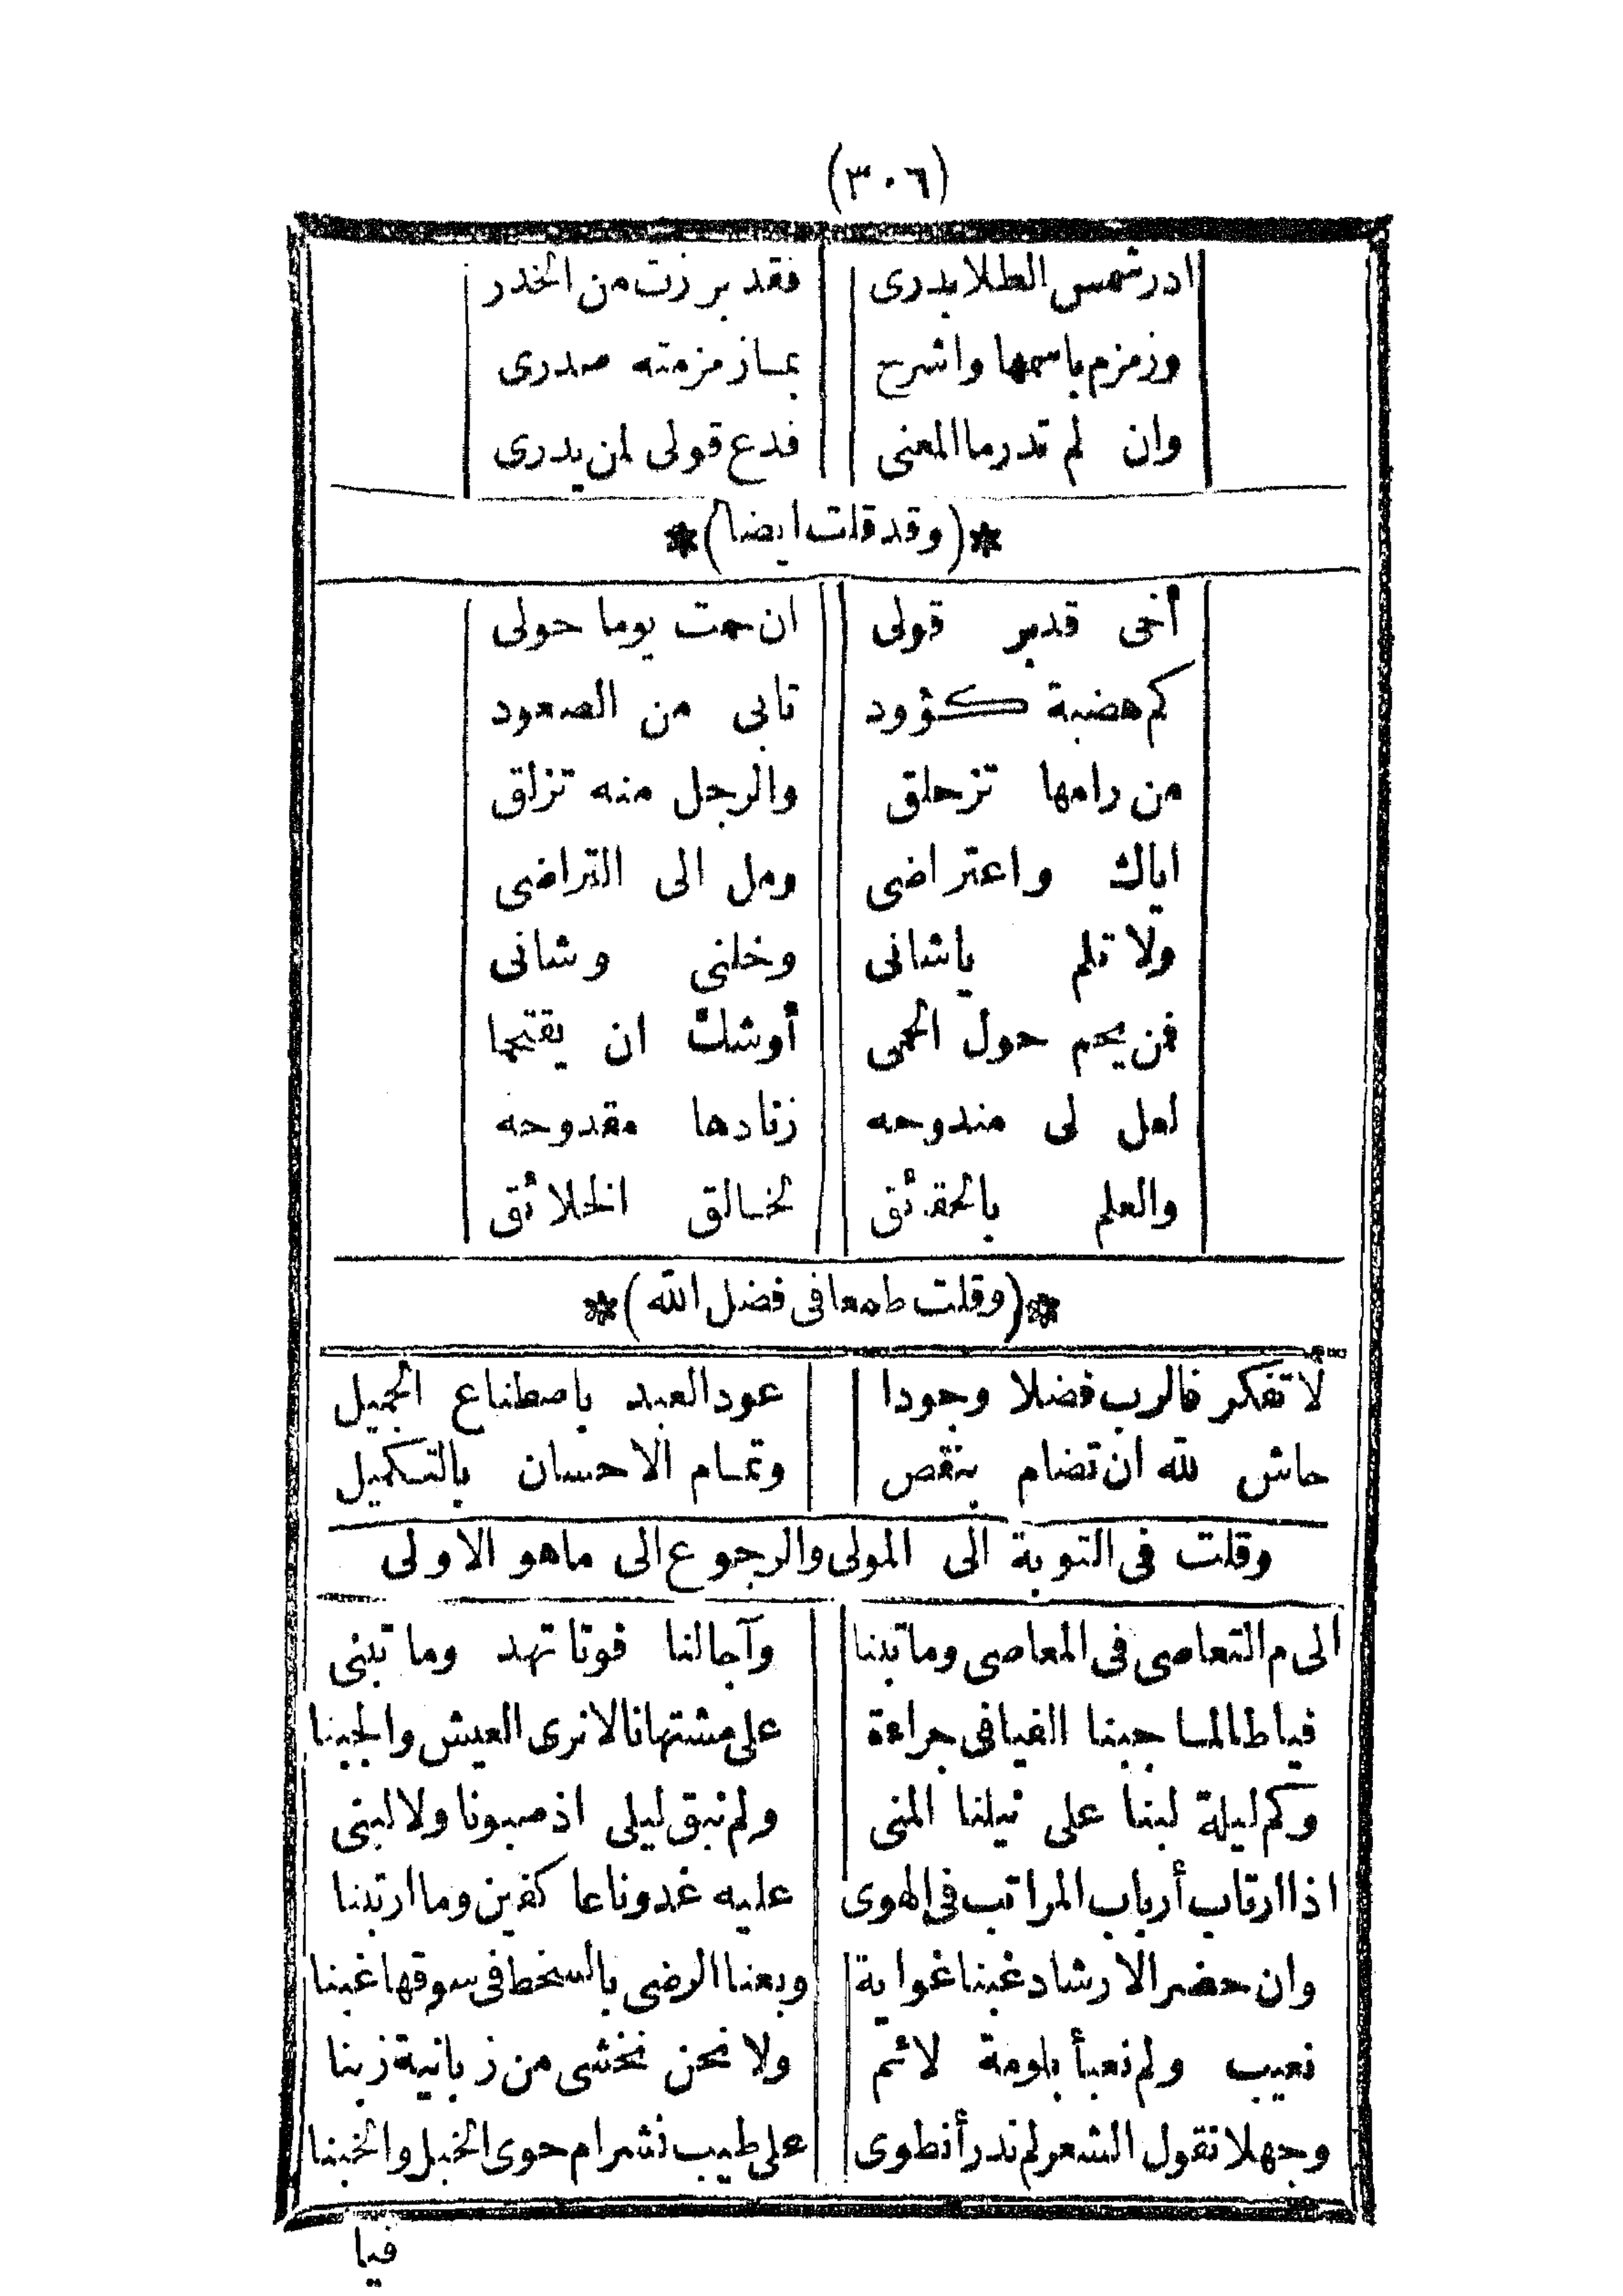 (٣٠٦)
ادر شمس الطلا بدرى فقد برزت من الخدر
وزمزم باسمها واشرح بماز مزمته صدرى
وان لم تدر ما المعنى فدع قولى لمن يدرى
*(وقد قلت ايضا)*
أخى تدبر قولى ان حمت يوما حولى
كم هضبة كؤود تابى من الصعود
من رامها تزحلق والرجل منه تزلق
اياك واعتراضى ومل الى التراضى
ولا تلم ياشانى وخلنى وشانى
فمن يحم حول الحمى أوشك ان يقتحما
لعل لى مندوحه زنادها مقدوحه
والعلم بالحقائق لخالق الخلائق
*(وقلت طمعا فى فضل الله)*
لا تفكر فالرب فضلا وجودا عود العبد باصطناع الجميل
حاش لله ان تضام بنقص وتمام الاحسان بالتكميل
وقلت فى التوبة الى المولى والرجوع الى ماهو الاولى
الى م التعاصى فى المعاصى وما تبنا وآجالنا فوتا تهد وما تبنى
فيا طالما جبنا الفيافى جراءة على مشتهانا لا نرى العيش والجبنا
وكم ليلة لبنا على نيلنا المنى ولم نبق ليلى اذ صبونا ولا لبنى
اذا ارتاب أرباب المراتب فى الهوى عليه غدونا عاكفين وما ارتبنا
وان حضر الارشاد غبنا غواية وبعنا الرضى بالسخط فى سوقها غبنا
نعيب ولم نعبأ بلومة لائم ولا نحن نخشى من زبانية زبنا
وجهلا نقول الشعر لم ندر أنطوى على طيب نشر ام حوى الخبل والخبنا
فيا